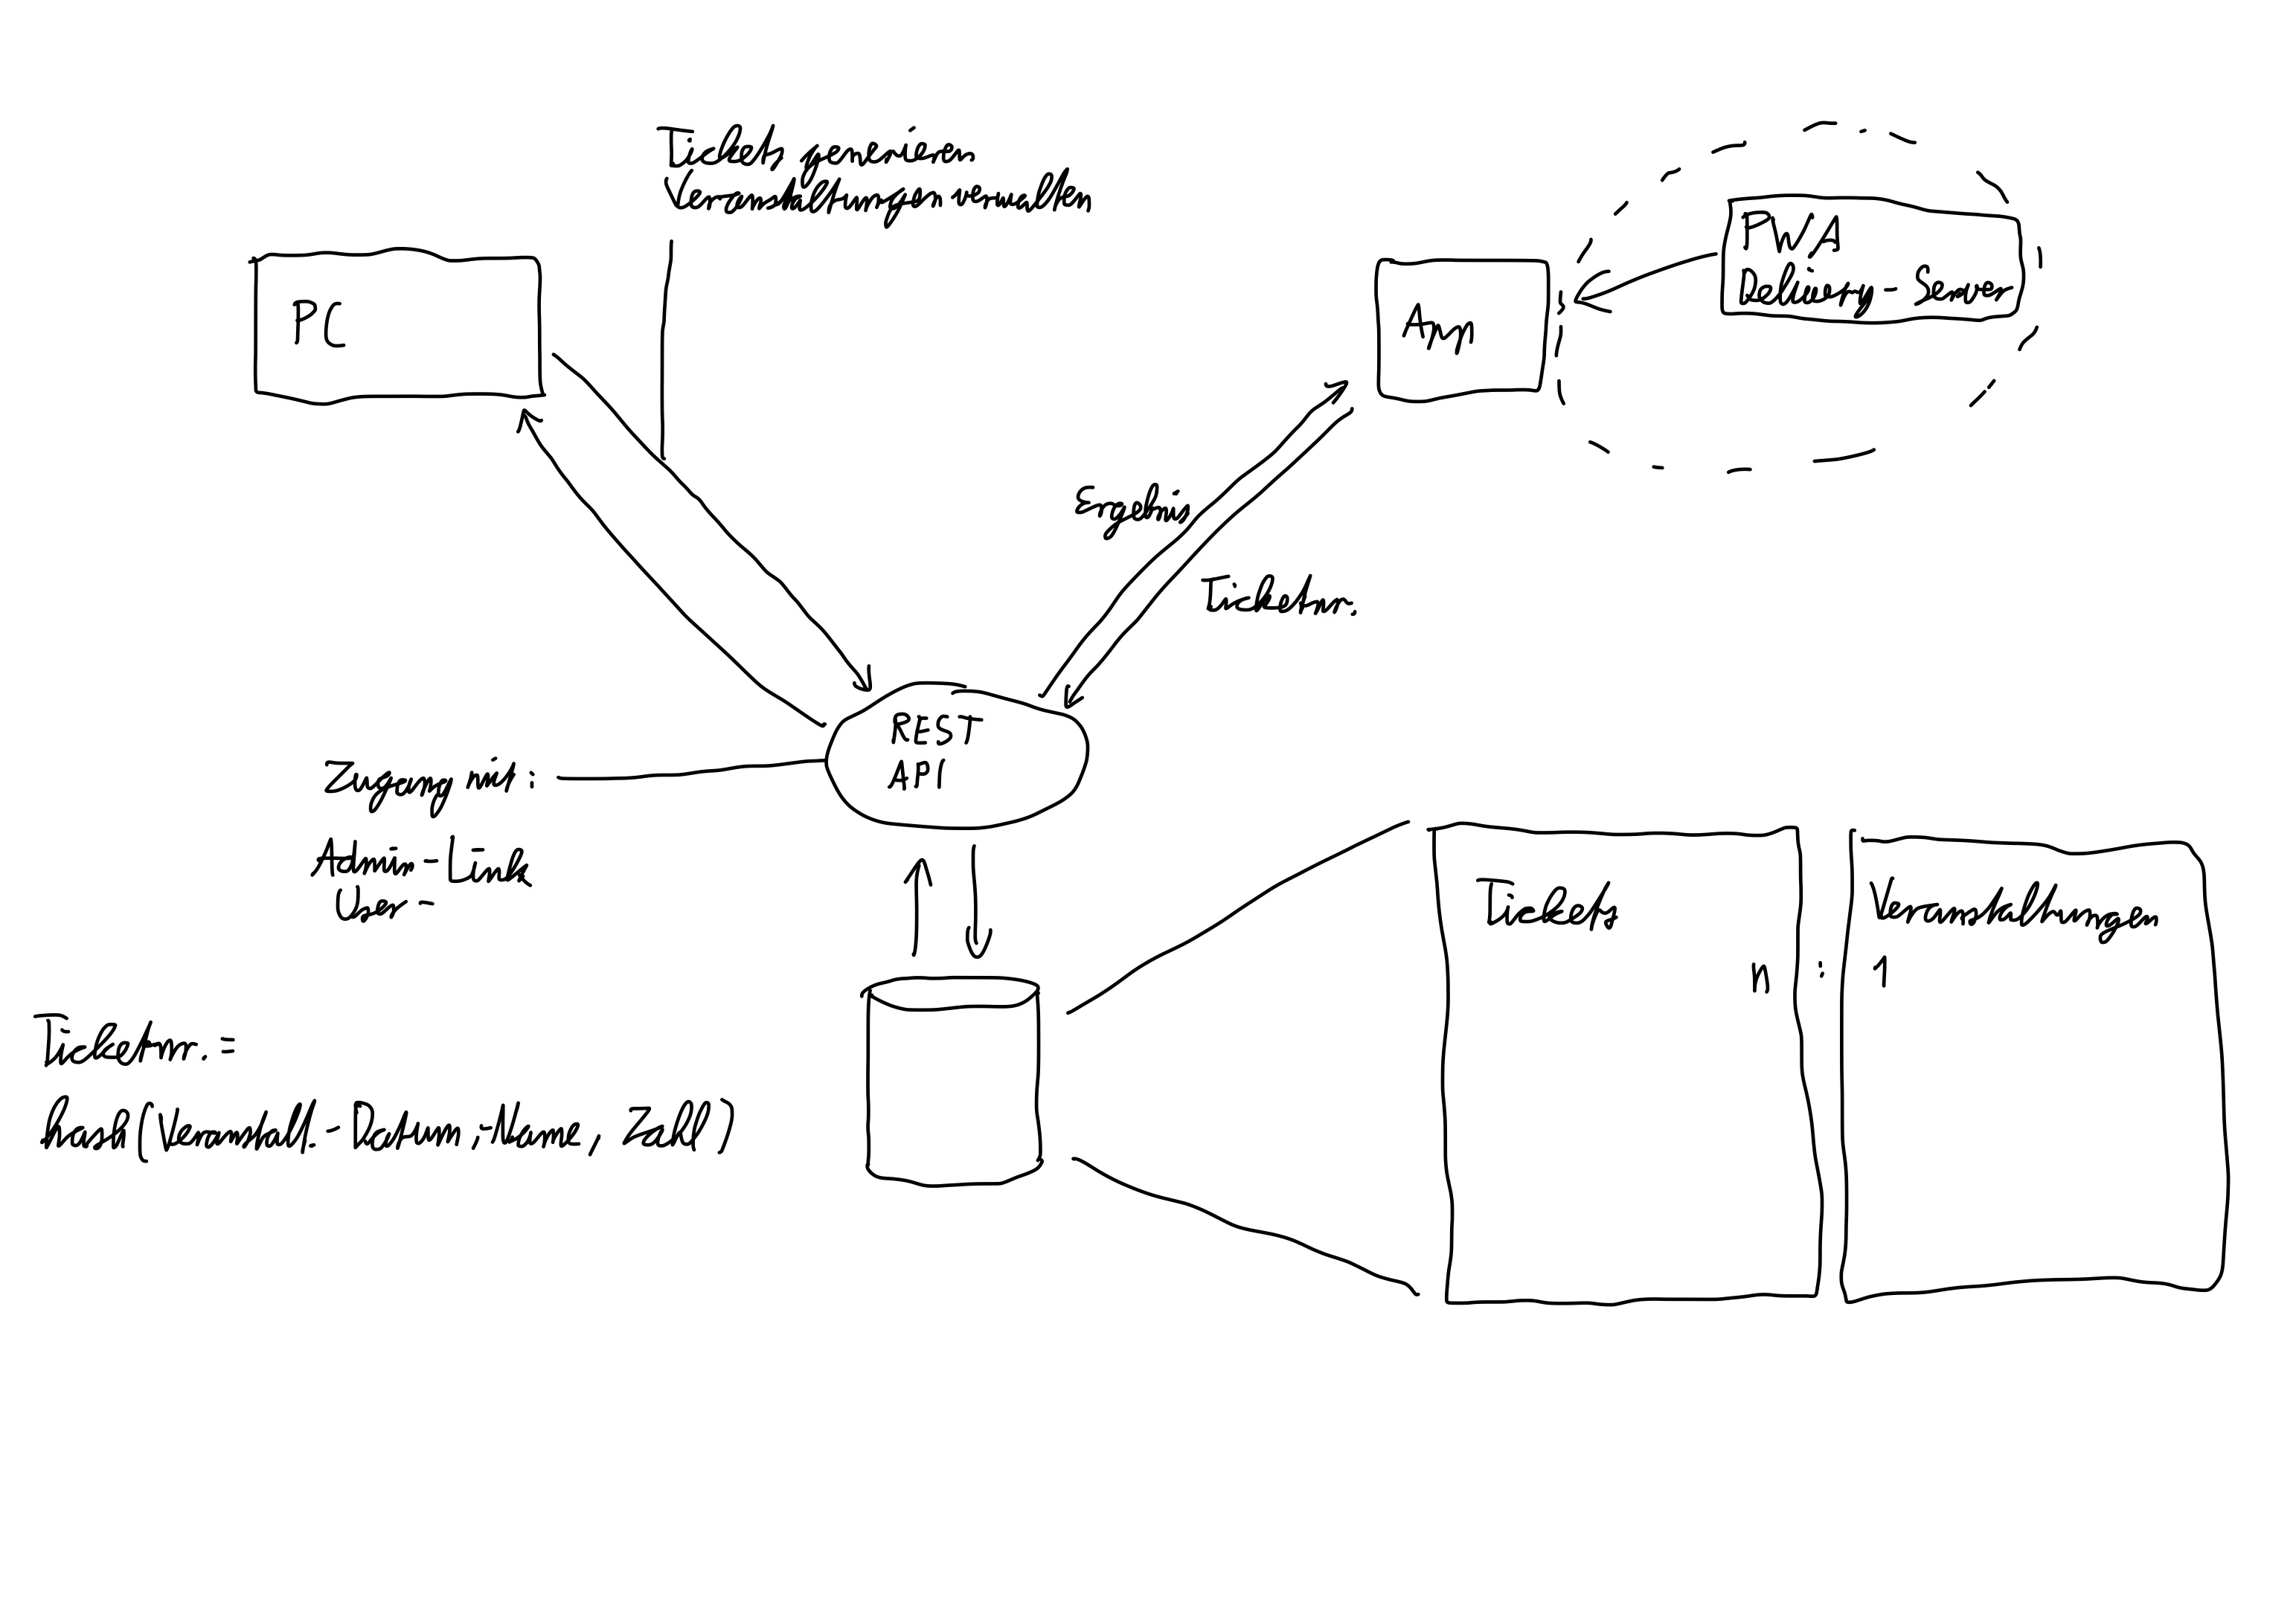 Tickets generieren
Veranstaltungen verwalten
PWA
Delivery-Server
PC
App
Ergebnis
Ticketnr.
REST
API
Zugang mit:
Admin-Link
User-
Tickets
Veranstaltungen
n : 1
Ticketnr. =
hash(Veranstalt.-Datum,-Name, Zahl)